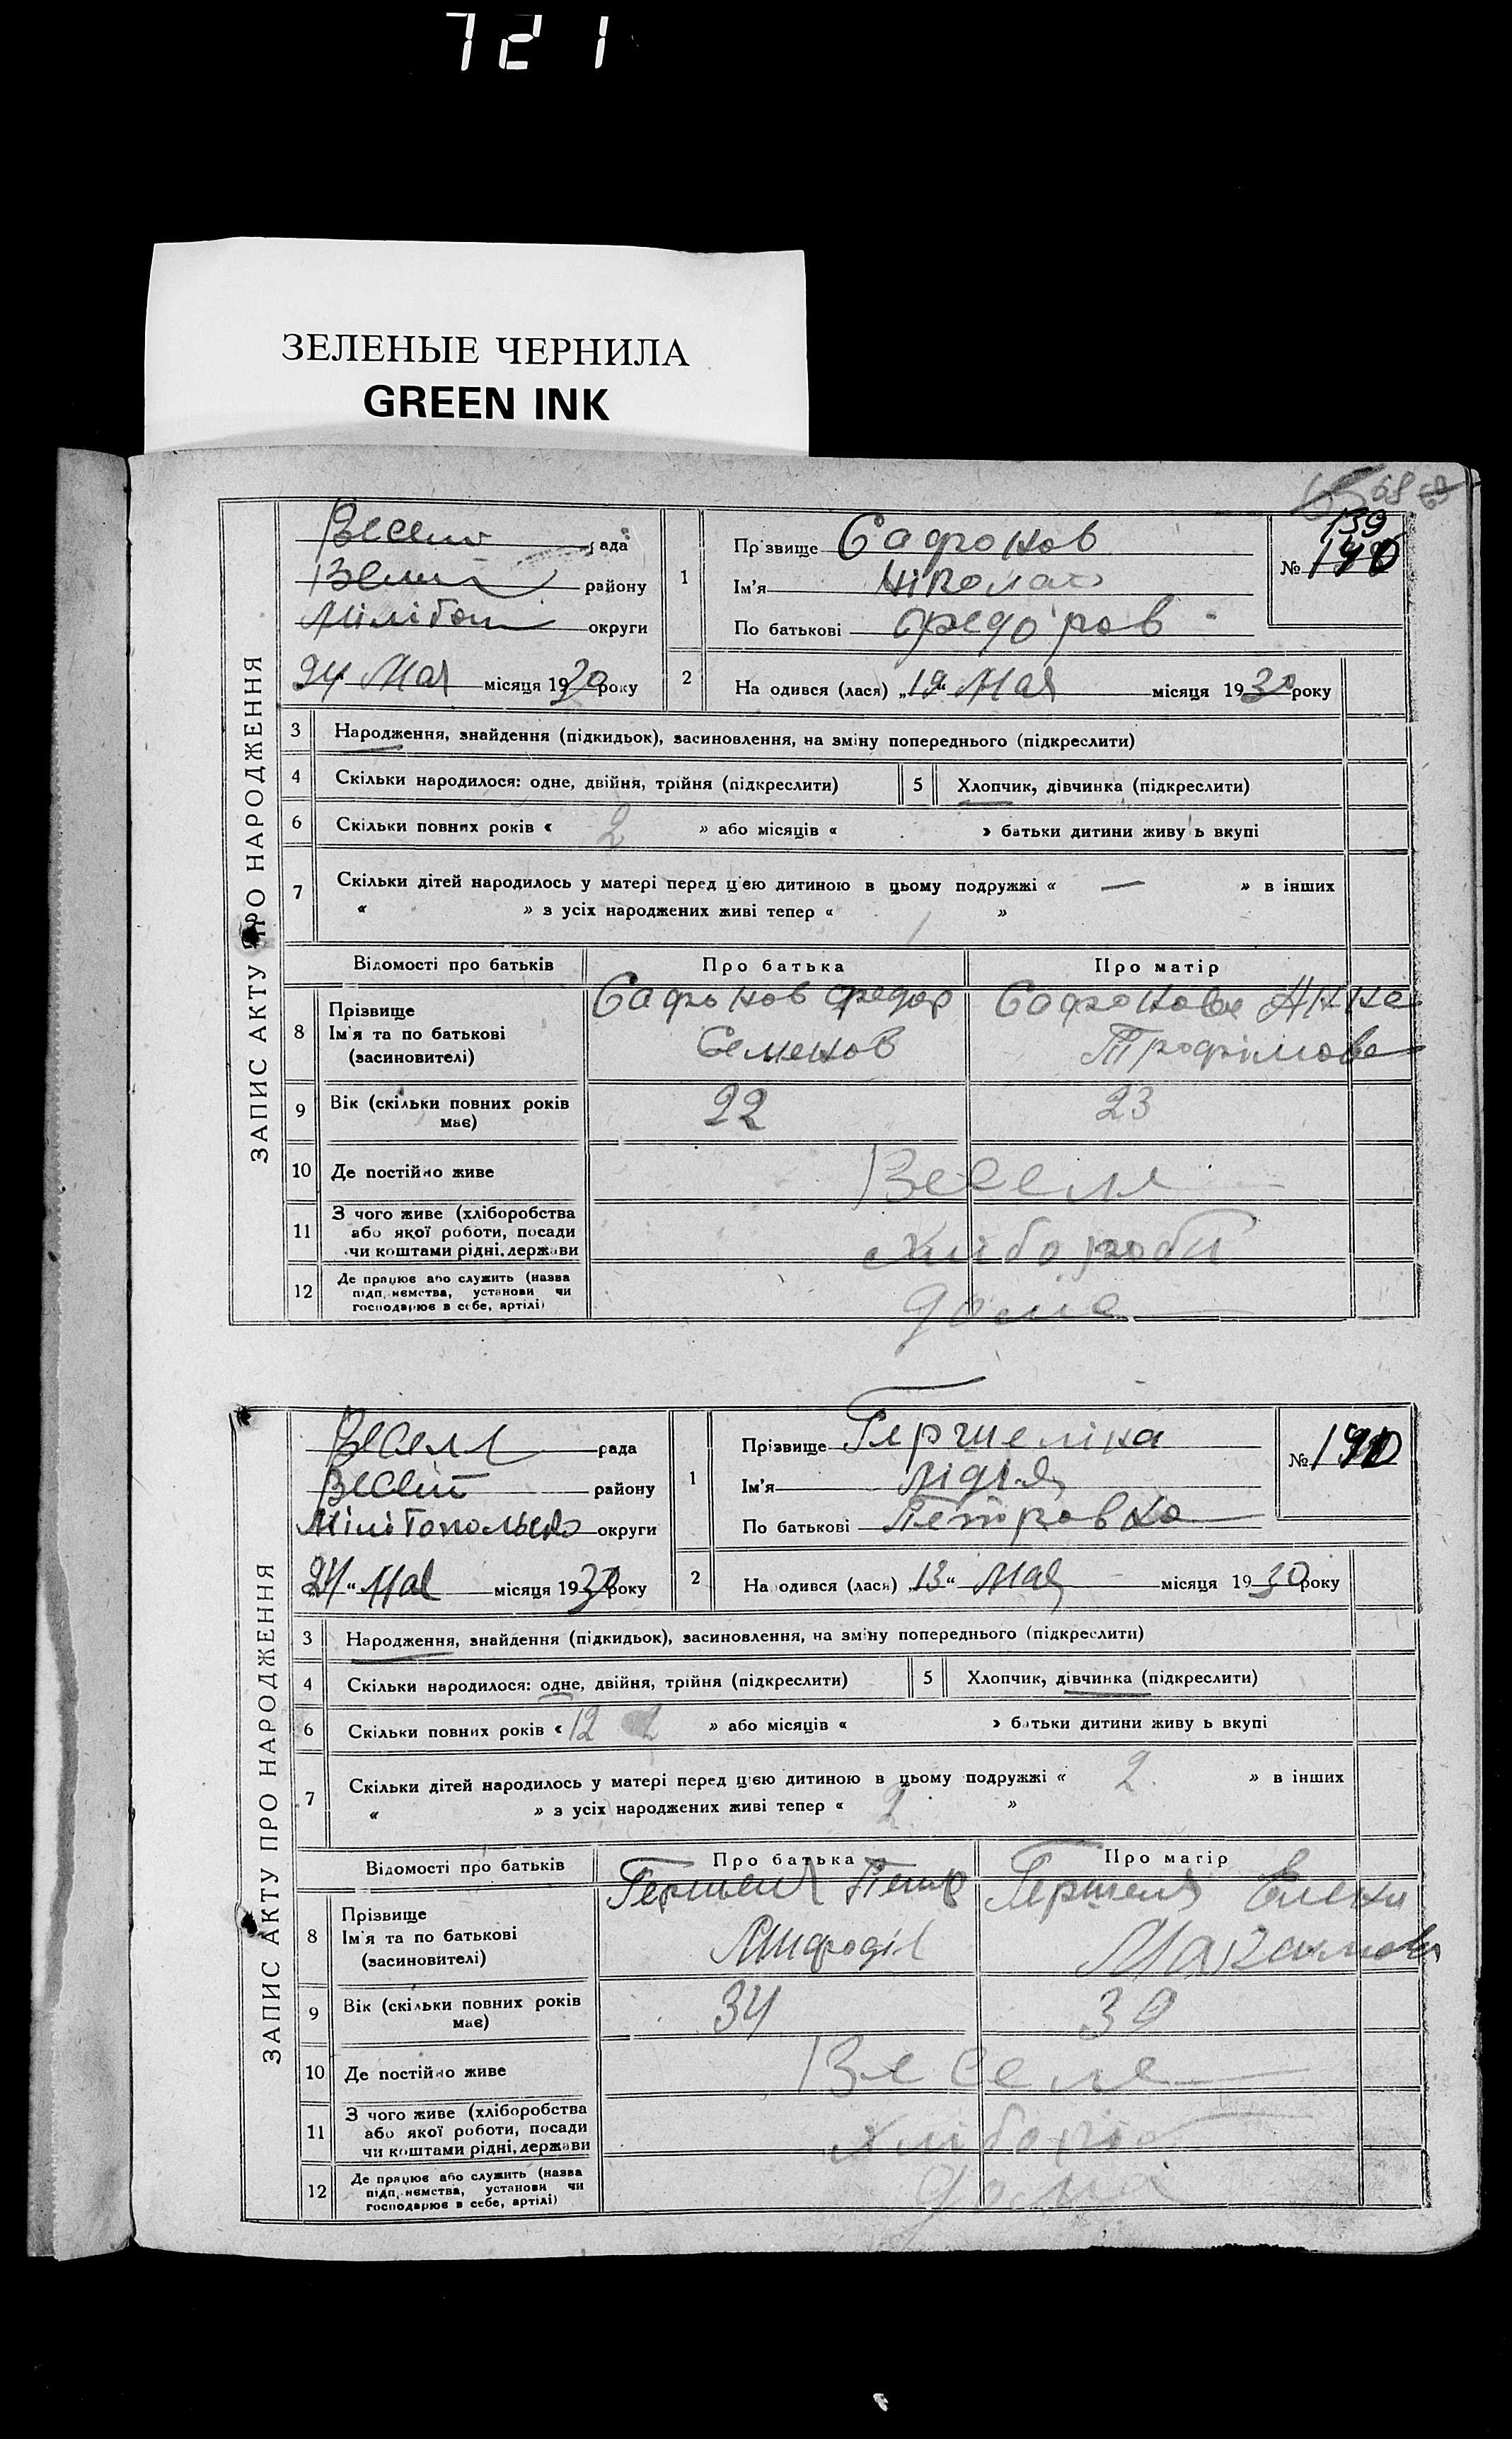 721
ЗЕЛЕНЫЕ ЧЕРНИЛА
GREEN INK
68
ЗАПИС АКТУ ПРО НАРОДЖЕННЯ
рада
району
округи
24 Мая місяця 1930 року
1
Прізвище Сафронов
Ім'я Ніколай
По батькові Федоров
139
№ 140
2
На одився (лася) „19" Мая місяця 1930 року
3 Народження, знайдення (підкидьок), засиновлення, на зміну попереднього (підкреслити)
4 Скільки народилося: одне, двійня, трійня (підкреслити)
5 Хлопчик, дівчинка (підкреслити)
6 Скільки повних років « 2 » або місяців « » батьки дитини живу ь вкупі
7 Скільки дітей народилось у матері перед цією дитиною в цьому подружжі « — » в інших
« » з усіх народжених живі тепер « »
Відомості про батьків
Про батька
Про матір
8 Прізвище
Ім'я та по батькові
(засиновителі)
Сафронов Федор
Семенов
Сафронова Анна
Трофімова
9 Вік (скільки повних років має)
22
23
10 Де постійно живе
Веселе
11 З чого живе (хліборобства
або якої роботи, посади
чи коштами рідні, держави
хлібороби
12 Де працює або служить (назва
підп, иємства, установи чи
господарює в себе, артілі)
дома
ЗАПИС АКТУ ПРО НАРОДЖЕННЯ
рада
району
Мілітопольско округи
24" Мая місяця 1930 року
1
Прізвище
Ім'я Лідія
По батькові Петровна
№
2
На одився (лася) „13" Мая місяця 1930 року
3 Народження, знайдення (підкидьок), засиновлення, на зміну попереднього (підкреслити)
4 Скільки народилося: одне, двійня, трійня (підкреслити)
5 Хлопчик, дівчинка (підкреслити)
6 Скільки повних років « 12 » або місяців « » батьки дитини живу ь вкупі
7 Скільки дітей народилось у матері перед цією дитиною в цьому подружжі « 2 » в інших
« » з усіх народжених живі тепер « 2 »
Відомості про батьків
Про батька
Про матір
8 Прізвище
Ім'я та по батькові
(засиновителі)
9 Вік (скільки повних років має)
34
39
10 Де постійно живе
Веселе
11 З чого живе (хліборобства
або якої роботи, посади
чи коштами рідні, держави
12 Де працює або служить (назва
підп, иємства, установи чи
господарює в себе, артілі)
дома